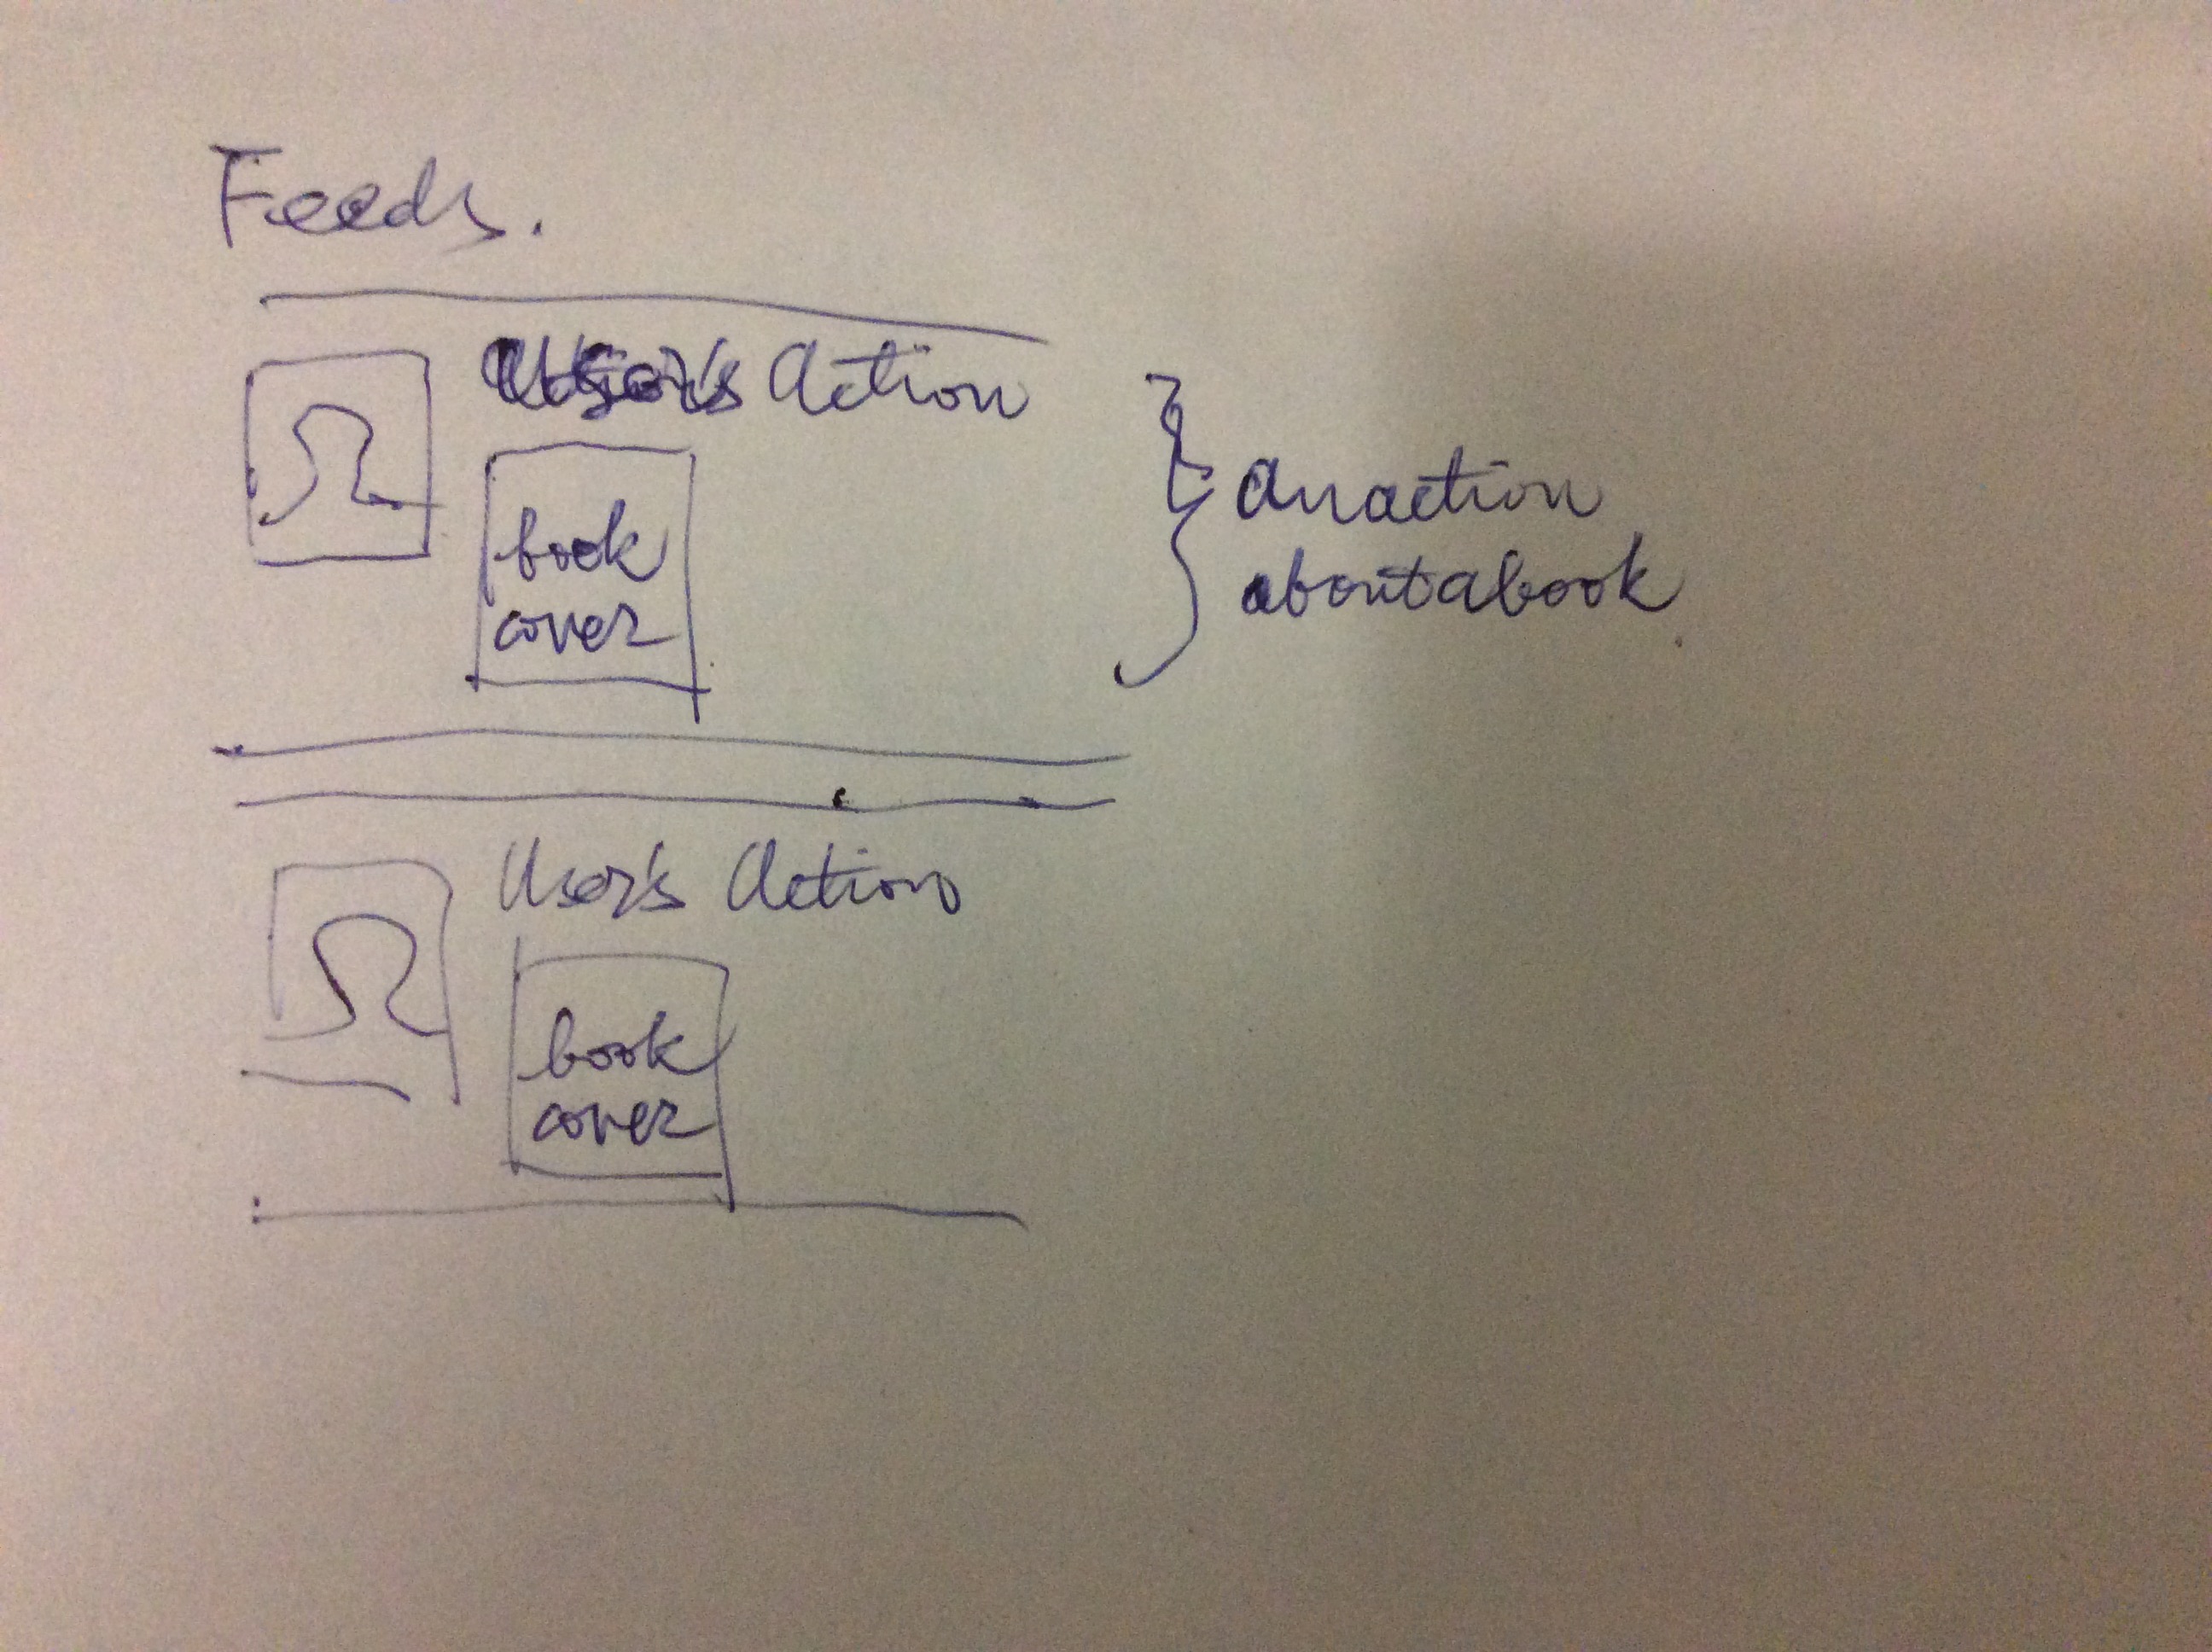 Feeds.
User's Action
book
cover
an action
about a book
User's Action
book
cover